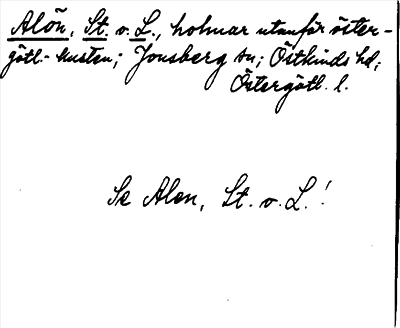 Alön, St. o. L., holmar utanför öster-
götl.-kusten; Jonsberg sn; Östkinds hd;
Östergötl. l.
Se Alen, St. o. L.!